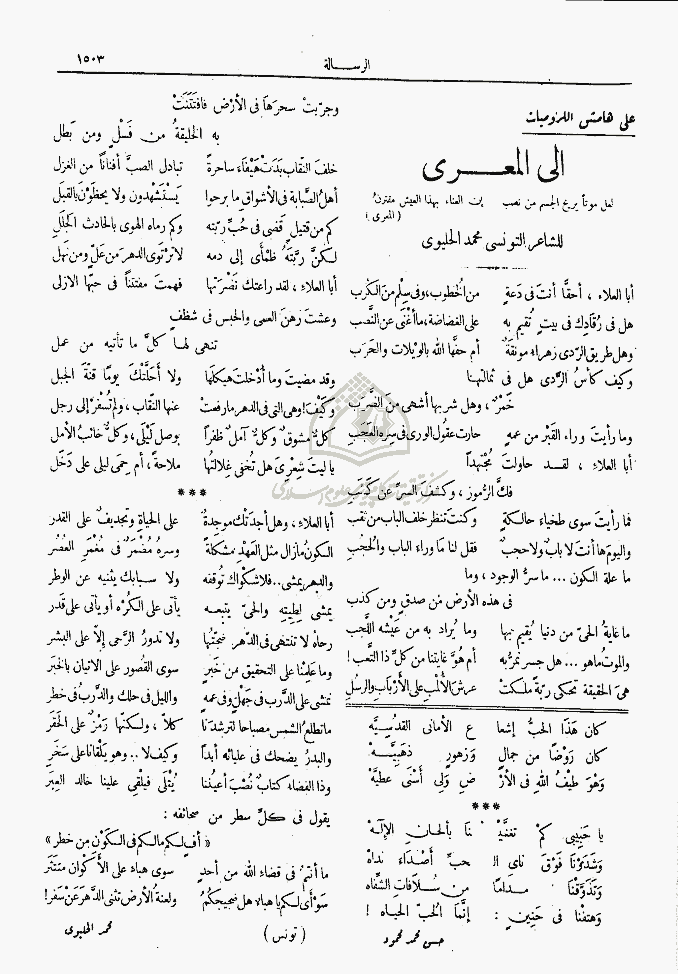 الرسالة
١٥٠٣
على هامش اللزوميات
الى المعرى
لعل موتاً يريح الجسم من نصب إن العناء بهذا العيش مقترن
(المعرى)
للشاعر التونسى محمد الحليوى
أبا العلاء ، أحقًّا أنت فى دَعةٍ من الخطوب، وفى سِلم من الكرب
هل فى رُقادك فى بيت تُقيم به على الفضاضة، ما أغْنى عن النَّصب
وهل طريق الرَّدى زهراء مونقةٌ أم حفَّها الله بالويلات والحَرَب
وكيف كأسُ الرَّدى هل فى ثمالتهنا
خَمْرٌ ، وهل شربها أشهى من الضَّرَب
وما رأيت وراء القبْر من عمهٍ حارت عقول الورى فى سِره العَجَب
أبا العلاء ، لقد حاولت مُجْتهداً
فكَّ الرُّموز ، وكشفَ السرِّ عن كثَب
فما رأيت سوى طخياء حالكةٍ وكنتَ تنظر خلف الباب من ثقب
واليوم ها أنت لا بابٌ ولا حجبٌ فقل لنا ما وراء الباب والحُجُب
ما علة الكون ... ما سرُّ الوجود ، وما
فى هذه الأرض مِن صدقٍ ومن كذب
ما غايةُ الحىِّ من دنيا يُقيم بها وما يُراد به من عَيْشه اللَّجِب
والموتُ ماهو ... هل جسر تمرُّ به أم هوَّ غايتنا من كلِّ ذا التَّعب !
هىَ الحقيقة تحكى ربَّةً ملكتْ عرشَ الألُمْبِ على الأرْبابِ والرسُلِ
وجرّبتْ سحرَها فى الأرْض فافتَتَنَتْ
به الخليقةُ من فَسْلٍ ومن بَطل
خلفَ النقاب بَدَتْ هَيفاء ساحرةً تبادل الصبَّ أفناناً من الغزل
أهلُ الصَّبابة فى الأشواق ما برحوا يَسْتَشْهدون ولا يحظَوْن بالقبل
كم من قتيل قَضى فى حُبِّ ربّته وكم رماه الهوى بالحادث الجَلَلِ
لكنَّ ربَّتهُ ظمْأى إلى دمه لا ترْتوى الدهرَ من عَلٍّ ومن نَهل
أبا العلاء ، لقد راعتك نَضْرَتها فهمتَ مفتتناً فى حبِّها الازلى
وعشتَ رَهنَ العمى والحبس فى شظفٍ
تنهى لها كلَّ ما تأتيه من عمل
وقد مضيتَ وما أُدْخِلتَ هيكلَها ولا أحَلَّتْكَ يومًا قمةَ الجبل
وكيْفَ ! وهى التى فى الدهر ما رفعتْ عنها النقاب ، ولم تُسْفِرْ إلى رجل
كلٌّ مشوقٌ وكلٌّ آملٌ ظفرًا بوصل ليْلَى، وكلٌّ خائبُ الأمل
يا ليت شِعْرِىَ هل تُخفى غِلالتُها ملاحةً ، أم حِمى ليلى على دَخَل
***
أبا العلاء ، وهل أجدَتْك موجدةٌ على الحياةِ وتجديفٌ على القدر
الكون مازال مثل العَهْدِ مشكلةً وسره مُضْمَرٌ فى مُغْمَرِ العُصُر
والدهر يمشى.. فلا شكواك توقفه ولا سبابك يثنيه عن الوطر
يمشى لِطِيتِهِ والحىُّ يتبعه يأتى على الكُرْه أو يأتى على قدَر
رحاهُ لا تنتهى فى الدَّهر ضجَّتُها ولا تدورُ الرَّحى إلاَّ على البشر
وما حَصَلْنا على التحقيق من خَبَرٍ سوى القصور على الاتيان بالخبَر
نمشى على الدَّرب فى جَهْلٍ وفى عمهٍ والليل فى حلك والدَّربُ فى خطر
ماتطلعُ الشمس مصباحا لترشدَنا كلاّ ، ولكنَّها رَمْزٌ على الحَقَر
والبدرُ يضحك فى عليائه أبداً وكيف لا .. وهو يلقانا على سَخَرِ
وذا الفضاء كتابٌ نُصْبَ أعيُننا يُتْلَى فيلقى علينا خالد العِبَر
يقول فى كلِّ سطر من صحائفه :
« أفٍ لكم مالكم فى الكون من خطر »
ما أنتمُ فى قضاء الله من أحدٍ سوى هباء على الأكوان منتثر
سَوْأى لكم يا هباء هل ضجيجكمُ ولعنةُ الأرض تثنى الدَّهرَ عَنْ سَفَر!
(تونس)
محمد الحليوى
كان هَذَا الحبُّ إشعا ع الأمانى القدسِيَّه
كان رَوْضًا من جمالٍ وَزهورٍ ذهبِيَّه
وَهْوَ طيْفُ اللهِ فى الأرْ ضِ وَفى أسْمَى عطيَّه
***
يا حَبِيبى كمْ تغنَّيْـنا بألحان الإلَه
وَشدَوْنا فَوْقَ ناى الـحبِّ أصْدَاء نداهُ
وَتذوَّقْنا مدَاما من سُلافَاتِ الشِّفاه
وَهتفْنا فى حَنينٍ : إنَّما الحُبُّ الحياه !
حسن محمد محمود